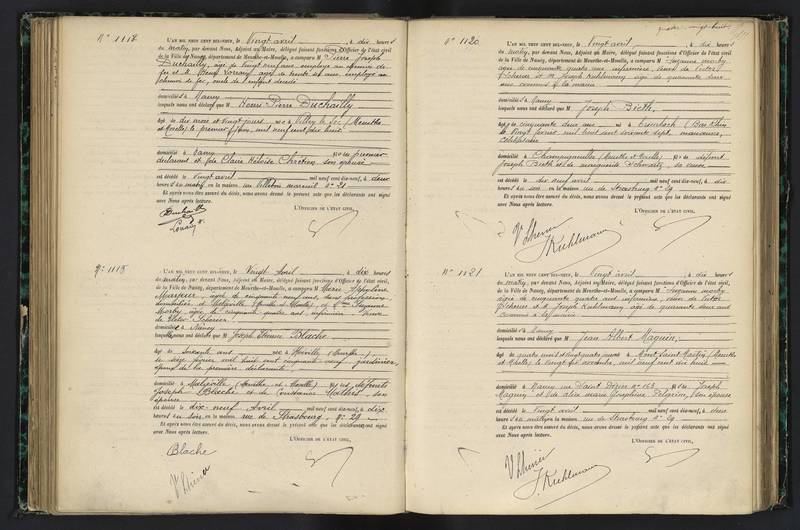 N° 1118
L'AN MIL NEUF CENT DIX-NEUF, le Vingt avril, à dix heures
du matin, par devant Nous, Adjoint au Maire, délégué faisant fonctions d'Officier de l'état civil
de la Ville de Nancy, département de Meurthe-et-Moselle, a comparu M Pierre Joseph
Duchailly, âgé de vingt neuf ans employé au chemin de
fer et M Lorrain, âgé de trente six ans, employé au
chemin de fer,
domiciliés à Nancy
lesquels nous ont déclaré que M Louis Pierre Duchailly
âgé de dix mois et vingt jours né à Villey le Sec (Meurthe
et Moselle) le premier juin, mil neuf cent dix huit
domicilié à Nancy fils du premier
déclarant et de Claire Héloïse Chrétien, son épouse
est décédé le Vingt avril mil neuf cent dix-neuf, à deux
heures du matin, en la maison, rue n° 21
Et après nous être assuré du décès, nous avons dressé le présent acte que les déclarants ont signé
avec Nous après lecture.
L'OFFICIER DE L'ÉTAT CIVIL,
Duchailly
N° 1119
L'AN MIL NEUF CENT DIX-NEUF, le Vingt Avril, à dix heures
du matin, par devant Nous, Adjoint au Maire, délégué faisant fonctions d'Officier de l'état civil
de la Ville de Nancy, département de Meurthe-et-Moselle, a comparu M
âgée de cinquante neuf ans, sans profession
domiciliée à (Meurthe et Moselle) et Suzanne
Morby âgée de cinquante quatre ans, infirmière, veuve
de Victor Scherier
domiciliés à Nancy
lesquels nous ont déclaré que M Joseph Etienne Blache
âgé de Soixante ans né à (Meurthe),
le seize février mil huit cent cinquante neuf, jardinier,
époux de la première déclarante
domicilié à (Meurthe et Moselle) fils des défunts
Joseph Blache et de Constance son
épouse
est décédé le dix-neuf Avril mil neuf cent dix-neuf, à dix
heures du soir, en la maison, rue de Strasbourg, n° 29
Et après nous être assuré du décès, nous avons dressé le présent acte que les déclarants ont signé
avec Nous après lecture.
L'OFFICIER DE L'ÉTAT CIVIL,
Blache
quatre vingt huit
N° 1120
L'AN MIL NEUF CENT DIX-NEUF, le Vingt avril, à dix heures
du matin, par devant Nous, Adjoint au Maire, délégué faisant fonctions d'Officier de l'état civil
de la Ville de Nancy, département de Meurthe-et-Moselle, a comparu M Suzanne Morby
âgée de cinquante quatre ans infirmière, veuve de Victor
Scherier et M Joseph Kuhlmann âgé de quarante deux
ans commis à la mairie
domiciliés à Nancy
lesquels nous ont déclaré que M Joseph Bieth,
âgé de cinquante deux ans né à (Bas Rhin)
le Vingt janvier mil huit cent soixante sept, manœuvre,
célibataire
domicilié à Champigneulles (Meurthe et Moselle) fils de défunt
Joseph Bieth et de Marguerite Schwartz, sa veuve
est décédé le dix neuf avril mil neuf cent dix-neuf, à dix
heures du soir, en la maison, rue de Strasbourg n° 29
Et après nous être assuré du décès, nous avons dressé le présent acte que les déclarants ont signé
avec Nous après lecture.
L'OFFICIER DE L'ÉTAT CIVIL,
J. Kuhlmann
N° 1121
L'AN MIL NEUF CENT DIX-NEUF, le Vingt avril, à dix heures
du matin, par devant Nous, Adjoint au Maire, délégué faisant fonctions d'Officier de l'état civil
de la Ville de Nancy, département de Meurthe-et-Moselle, a comparu M Suzanne Morby
âgée de cinquante quatre ans infirmière, veuve de Victor
Scherier et M Joseph Kuhlmann âgé de quarante deux ans
commis à la mairie
domiciliés à Nancy
lesquels nous ont déclaré que M Jean Albert Magnien,
âgé de né à Mont Saint Martin (Meurthe
et Moselle) le vingt six novembre mil neuf cent dix huit
domicilié à Nancy rue Saint Dizier n° 163 fils de Joseph
Magny et de Marie Joséphine Pelgrin, son épouse
est décédé le Vingt avril mil neuf cent dix-neuf, à deux
heures du matin, en la maison, rue de Strasbourg n° 29
Et après nous être assuré du décès, nous avons dressé le présent acte que les déclarants ont signé
avec Nous après lecture.
L'OFFICIER DE L'ÉTAT CIVIL,
J. Kuhlmann